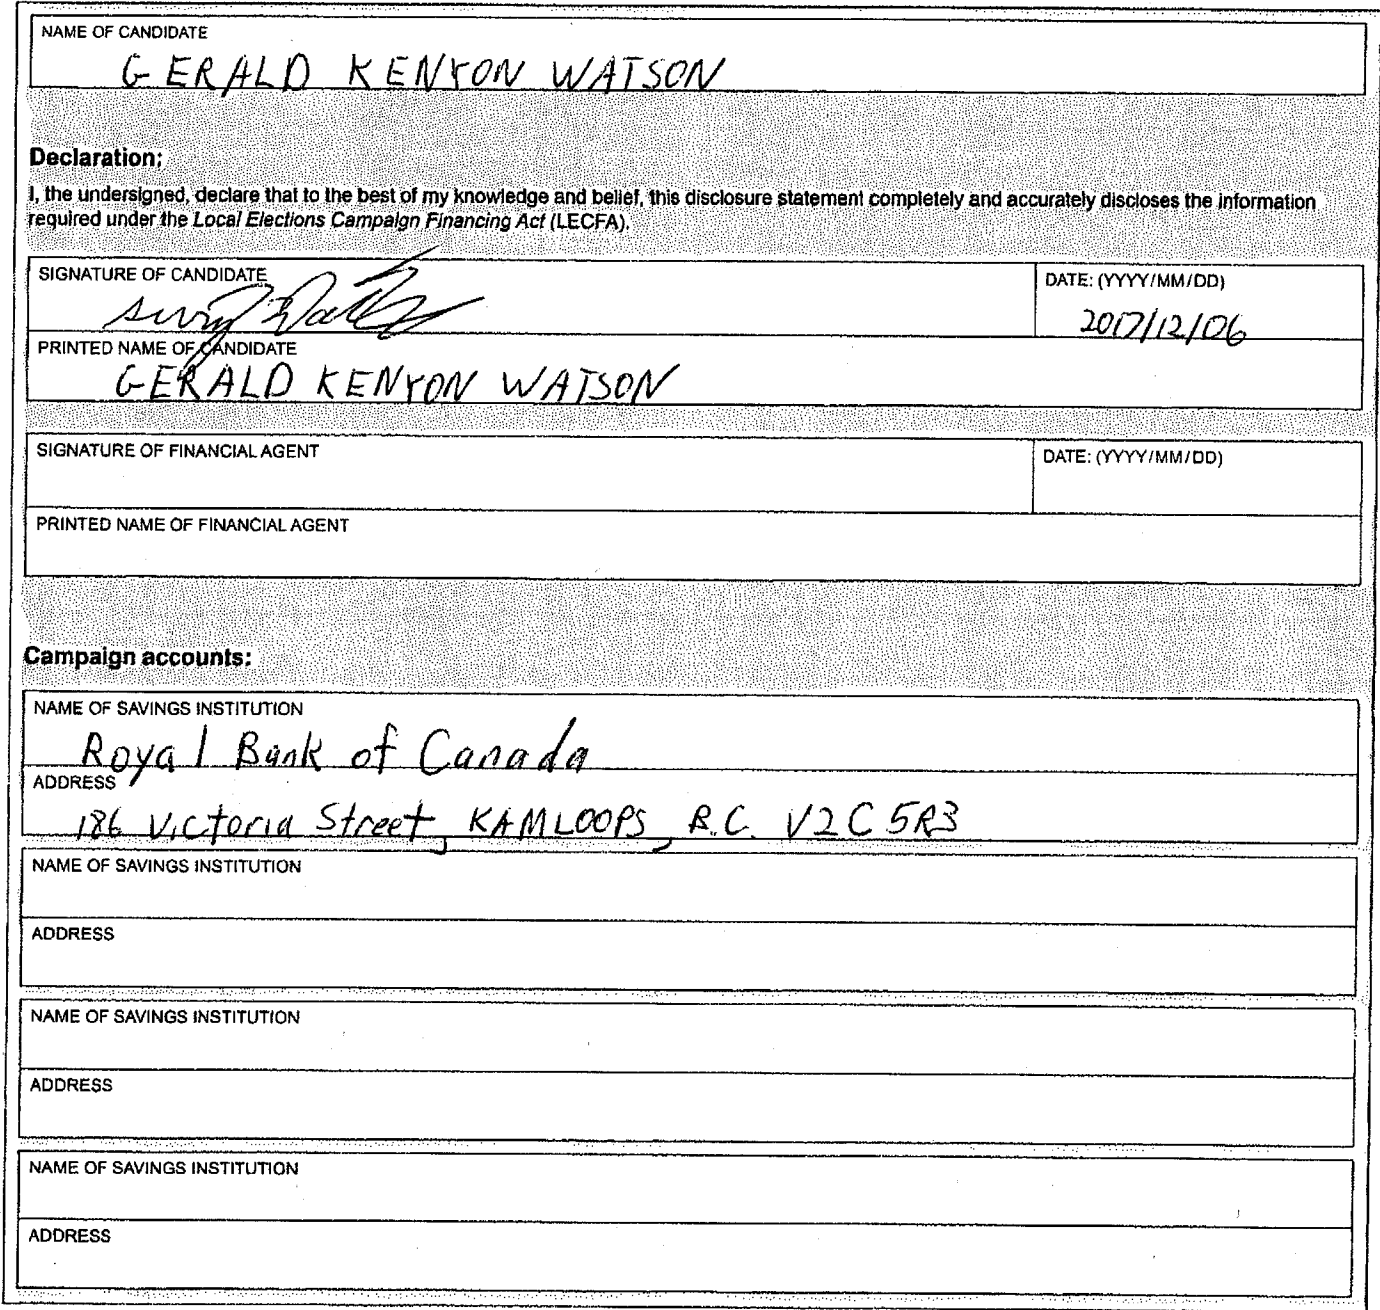 NAME OF CANDIDATE
GERALD KENYON WATSON
Declaration:
I, the undersigned, declare that to the best of my knowledge and belief, this disclosure statement completely and accurately discloses the information
required under the Local Elections Campaign Financing Act (LECFA).
SIGNATURE OF CANDIDATE
DATE: (YYYY/MM/DD)
2017/12/06
PRINTED NAME OF CANDIDATE
GERALD KENYON WATSON
SIGNATURE OF FINANCIAL AGENT
DATE: (YYYY/MM/DD)
PRINTED NAME OF FINANCIAL AGENT
Campaign accounts:
NAME OF SAVINGS INSTITUTION
Royal Bank of Canada
ADDRESS
186 Victoria Street, KAMLOOPS, B.C. V2C 5R3
NAME OF SAVINGS INSTITUTION
ADDRESS
NAME OF SAVINGS INSTITUTION
ADDRESS
NAME OF SAVINGS INSTITUTION
ADDRESS